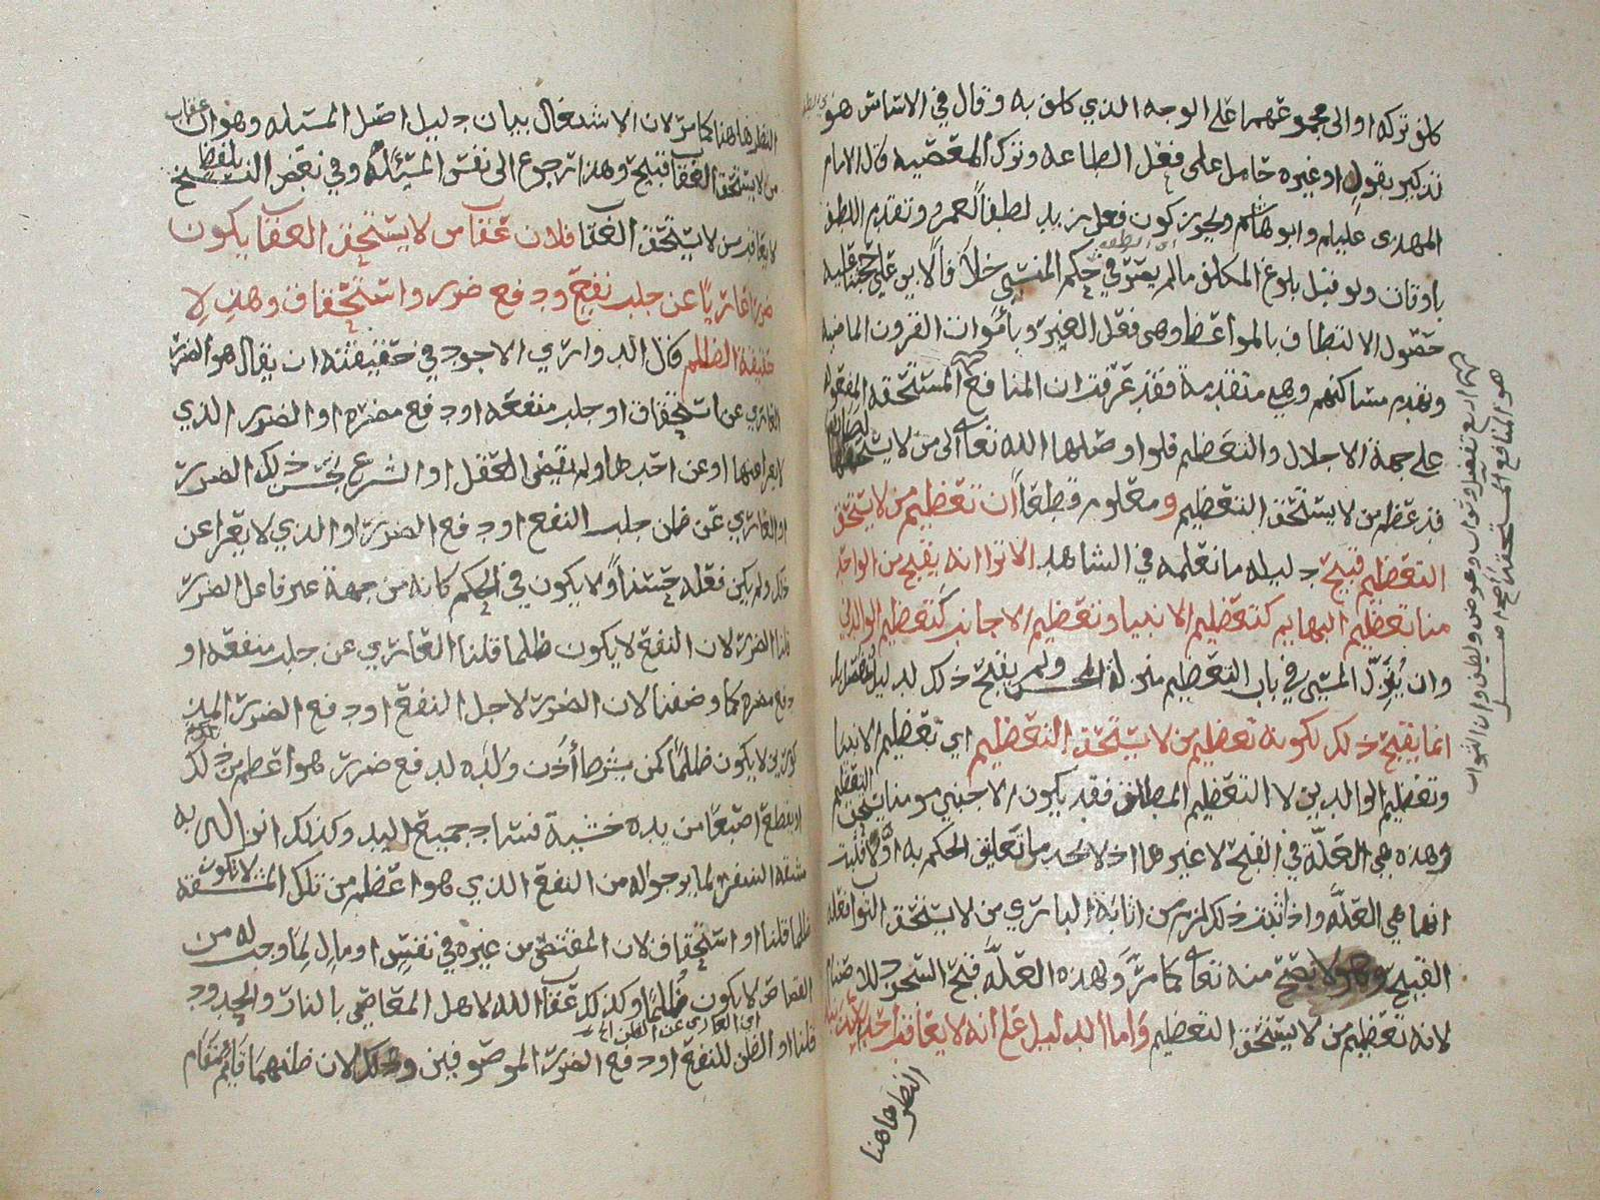 كلف تركه او الى مجموعهما على الوجه الذي كلف به وقال في الاساس هو
تذكير بقول او غيره حامل على فعل الطاعة وترك المعصيه قال الامام
المهدى عليلم وابو هاشم ويجوز كون فعل زيد لطفا لعمرو وتقدم اللطف
باوقات ولو قبل بلوغ المكلف مالم يصر في حكم المنسي خلافا لابي علي
حصول الالتطاف بالمواعظ وهى فعل الغير وبأموات القرون الماضيه
وتهدم مساكنهم وهي متقدمة فقد عرفت ان المنافع المستحقه المفعوله
على جهة الاجلال والتعظيم فلو اوصلها الله تعالى الى من لا يستحقها
قد عظم من لا يستحق التعظيم ومعلوم قطعا أن تعظيم من لا يستحق
التعظيم قبيح دليله ما نعلمه في الشاهد الا ترا انه يقبح من الواحد
منا تعظيم البهايم كتعظيم الانبيا وتعظيم الاجانب كتعظيم الوالدين
وان يُنزل المسي في باب التعظيم منزلة المحسن ولم يقبح ذلك
انما يقبح ذلك لكونه تعظيم من لا يستحق التعظيم اي تعظيم الانبيا
وتعظيم الوالدين لا التعظيم المطلق فقد يكون الاجنبي مومنا يستحق التعظيم
وهذه هي العلة في القبح لا غيرها اذ لا نجد ما تعليق الحكم به أولا فثبت
انها هي العلة واذا ثبت ذلك لزم من اثابة الباري من لا يستحق الثواب فعله
القبيح وهو لا يصح منه تعالى كما مر ولهذه العلة قبح السجود
لانه تعظيم من لا يستحق التعظيم واما الدليل على أنه لا يعاقب أحدا
النظر هاهنا
اربع تفضل وثواب وعوض ولطف وان الثواب
هو المنافع المستحقة
النظر هاهنا كما مر لان الاشتغال ببيان دليل اصل المسئله وهو ان عقاب
من لا يستحق العقاب قبيح وهذا رجوع الى نفس المسئله وفي بعض النسخ بلفظ
لا يعاقب من لا يستحق العقاب فلان عقاب من لا يستحق العقاب يكون
ضررا عاريا عن جلب نفع ودفع ضرر واستحقاق وهذه
حقيقة الظلم قال الدواري الاجود في حقيقته ان يقال هو الضرر
العاري عن استحقاق او جلب منفعه او دفع مضره او الضرر الذي
لا يعرا عنها او عن احدها ولم يقض العقل او الشرع بحسن ذلك الضرر
او العاري عن ظن جلب النفع او دفع الضرر او الذي لا يعرا عن
ذلك ولم يكن فعله حسنا ولا يكون في الحكم كانه من جهة غير فاعل الضرر
قلنا الضرر لان النفع لا يكون ظلما قلنا العاري عن جلب منفعه او
دفع مضره كما وصفنا لان الضرر لاجل النفع او دفع الضرر
لا يكون ظلما كمن يشرط أذن ولده لدفع ضرر هو اعظم من ذلك
او يقطع اصبعا من يده خشية فساد جميع اليد وكذلك انزاله به
مشقه السفر لما يرجو له من النفع الذي هو اعظم من تلك المشقة لا يكون
ظلما قلنا او استحقاق لان المقتص من غيره في نفس او مال لما وجب له من
القصاص لا يكون ظلما وكذلك عقاب الله لاهل المعاصي بالنار والحدود
اي العاري عن الظن الخ
قلنا او الظن للنفع او دفع الضرر الموصوفين وذلك لان ظنهما قائم مقام